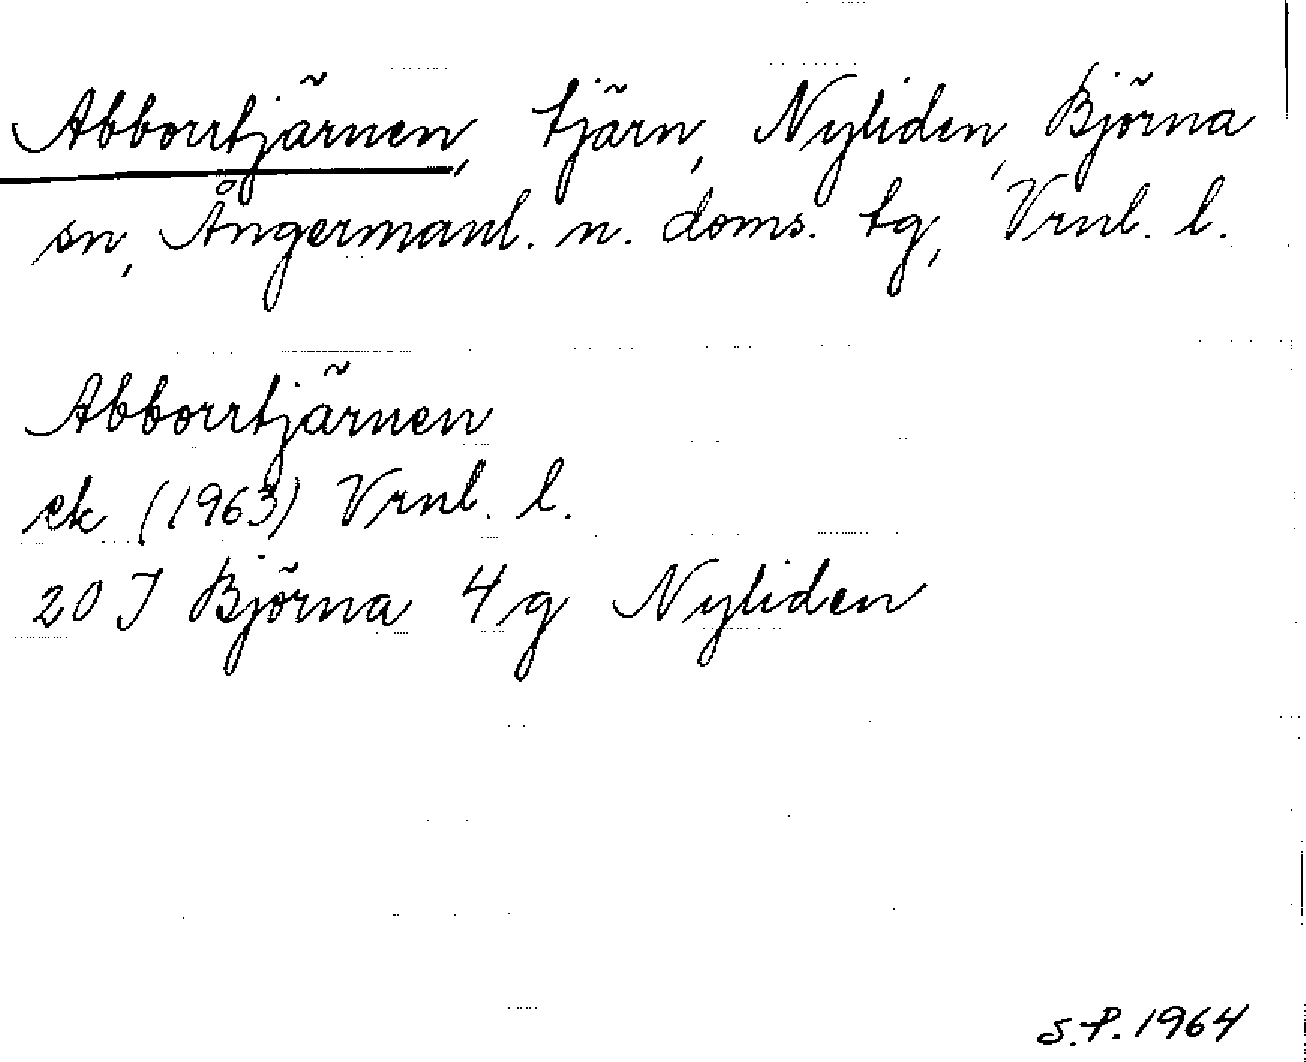 Abborrtjärnen, tjärn, Nyliden, Björna
sn, Ångermanl. n. doms. tg, Vrnl. l.
Abborrtjärnen
ek (1963) Vrnl. l.
20 J Björna 4 g Nyliden
S.P. 1964